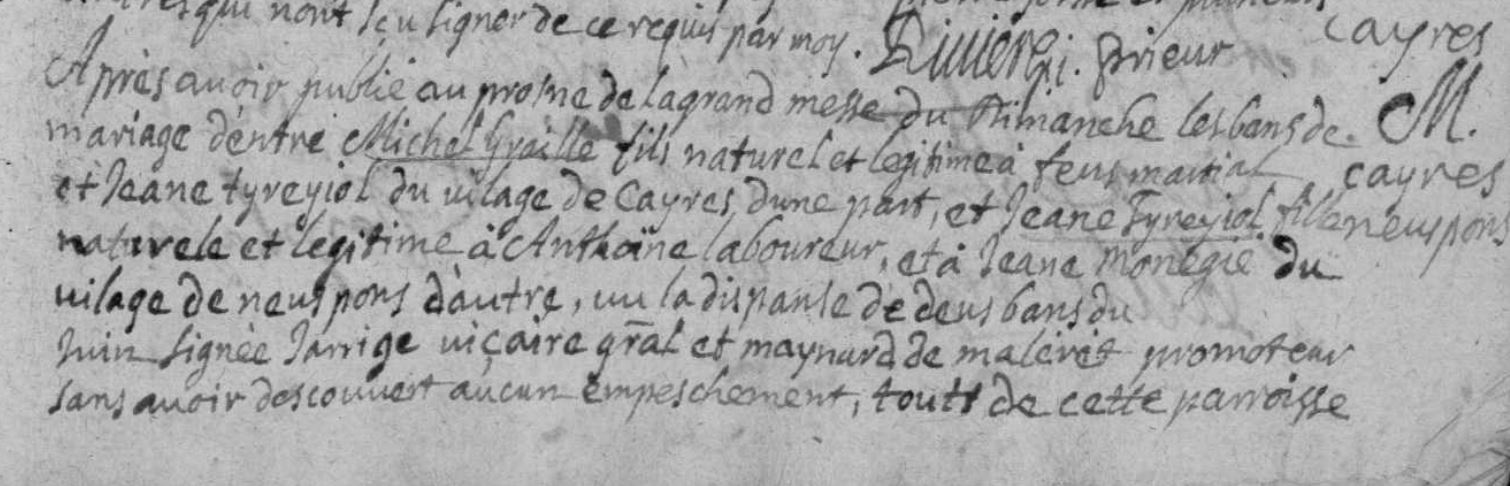 qui nont sçu signer de ce requis par moy. Riviere pri. prieur
cayres
Après avoir publié au prosne de la grand messe du Dimanche les bans de
M.
mariage d'entre Michel Graille fils naturel et legitime à feus martial
cayres
et Jeane tyreyiol du vilage de Cayres, dune part, et Jeane Tyreyiol fille
neuspons
naturele et legitime à Anthoine laboureur, et à Jeane Monegie du
vilage de neuspons d'autre, vu la dispanse de deus bans du
Juin signée Jarrige viçaire gral et maynard de maleret promoteur
sans avoir descouvert aucun empeschement, touts de cette parroisse